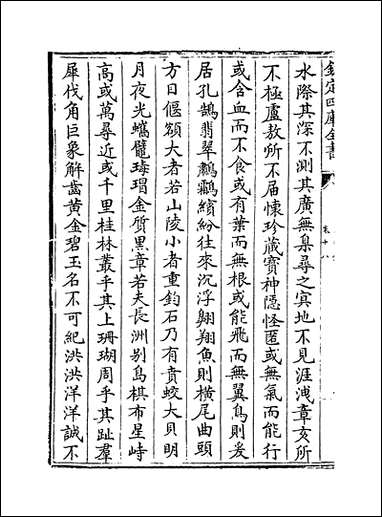 欽定四庫全書
水際其深不測其廣無臬尋之冥地不見涯洩章亥所
不極盧敖所不届懐珍藏寶神隱怪匿或無氣而能行
或含血而不食或有葉而無根或能飛而無翼鳥則爰
居孔鵠翡翠鸘繽紛往來沉浮翺翔魚則横尾曲頭
方目偃額大者若山陵小者重鈞石乃有賁蛟大貝明
月夜光蠵鼊瑇瑁金質黒章若夫長洲别島棋布星峙
高或萬尋近或千里桂林叢乎其上珊瑚周乎其趾羣
犀代角巨象解齒黄金碧玉名不可紀洪洪洋洋誠不